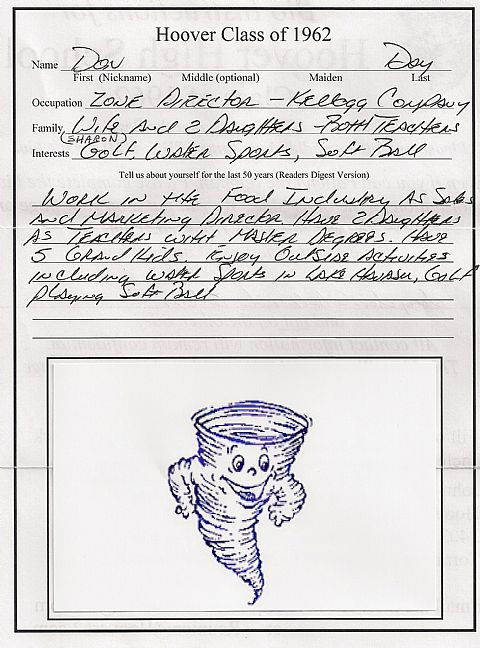 Hoover Class of 1962
Name Don Day
First (Nickname) Middle (optional) Maiden Last
Occupation Zone Director - Kellogg Company
Family Wife and 2 Daughters - Both Teachers
(Sharon)
Interests Golf, Water Sports, Soft Ball
Tell us about yourself for the last 50 years (Readers Digest Version)
Work in the Food Industry as Sales
and Marketing Director. Have 2 Daughters
as Teachers with Master Degrees. Have
5 Grand Kids. Enjoy Outside Activities
including water sports in Lake Havasu, Golf
playing Soft Ball